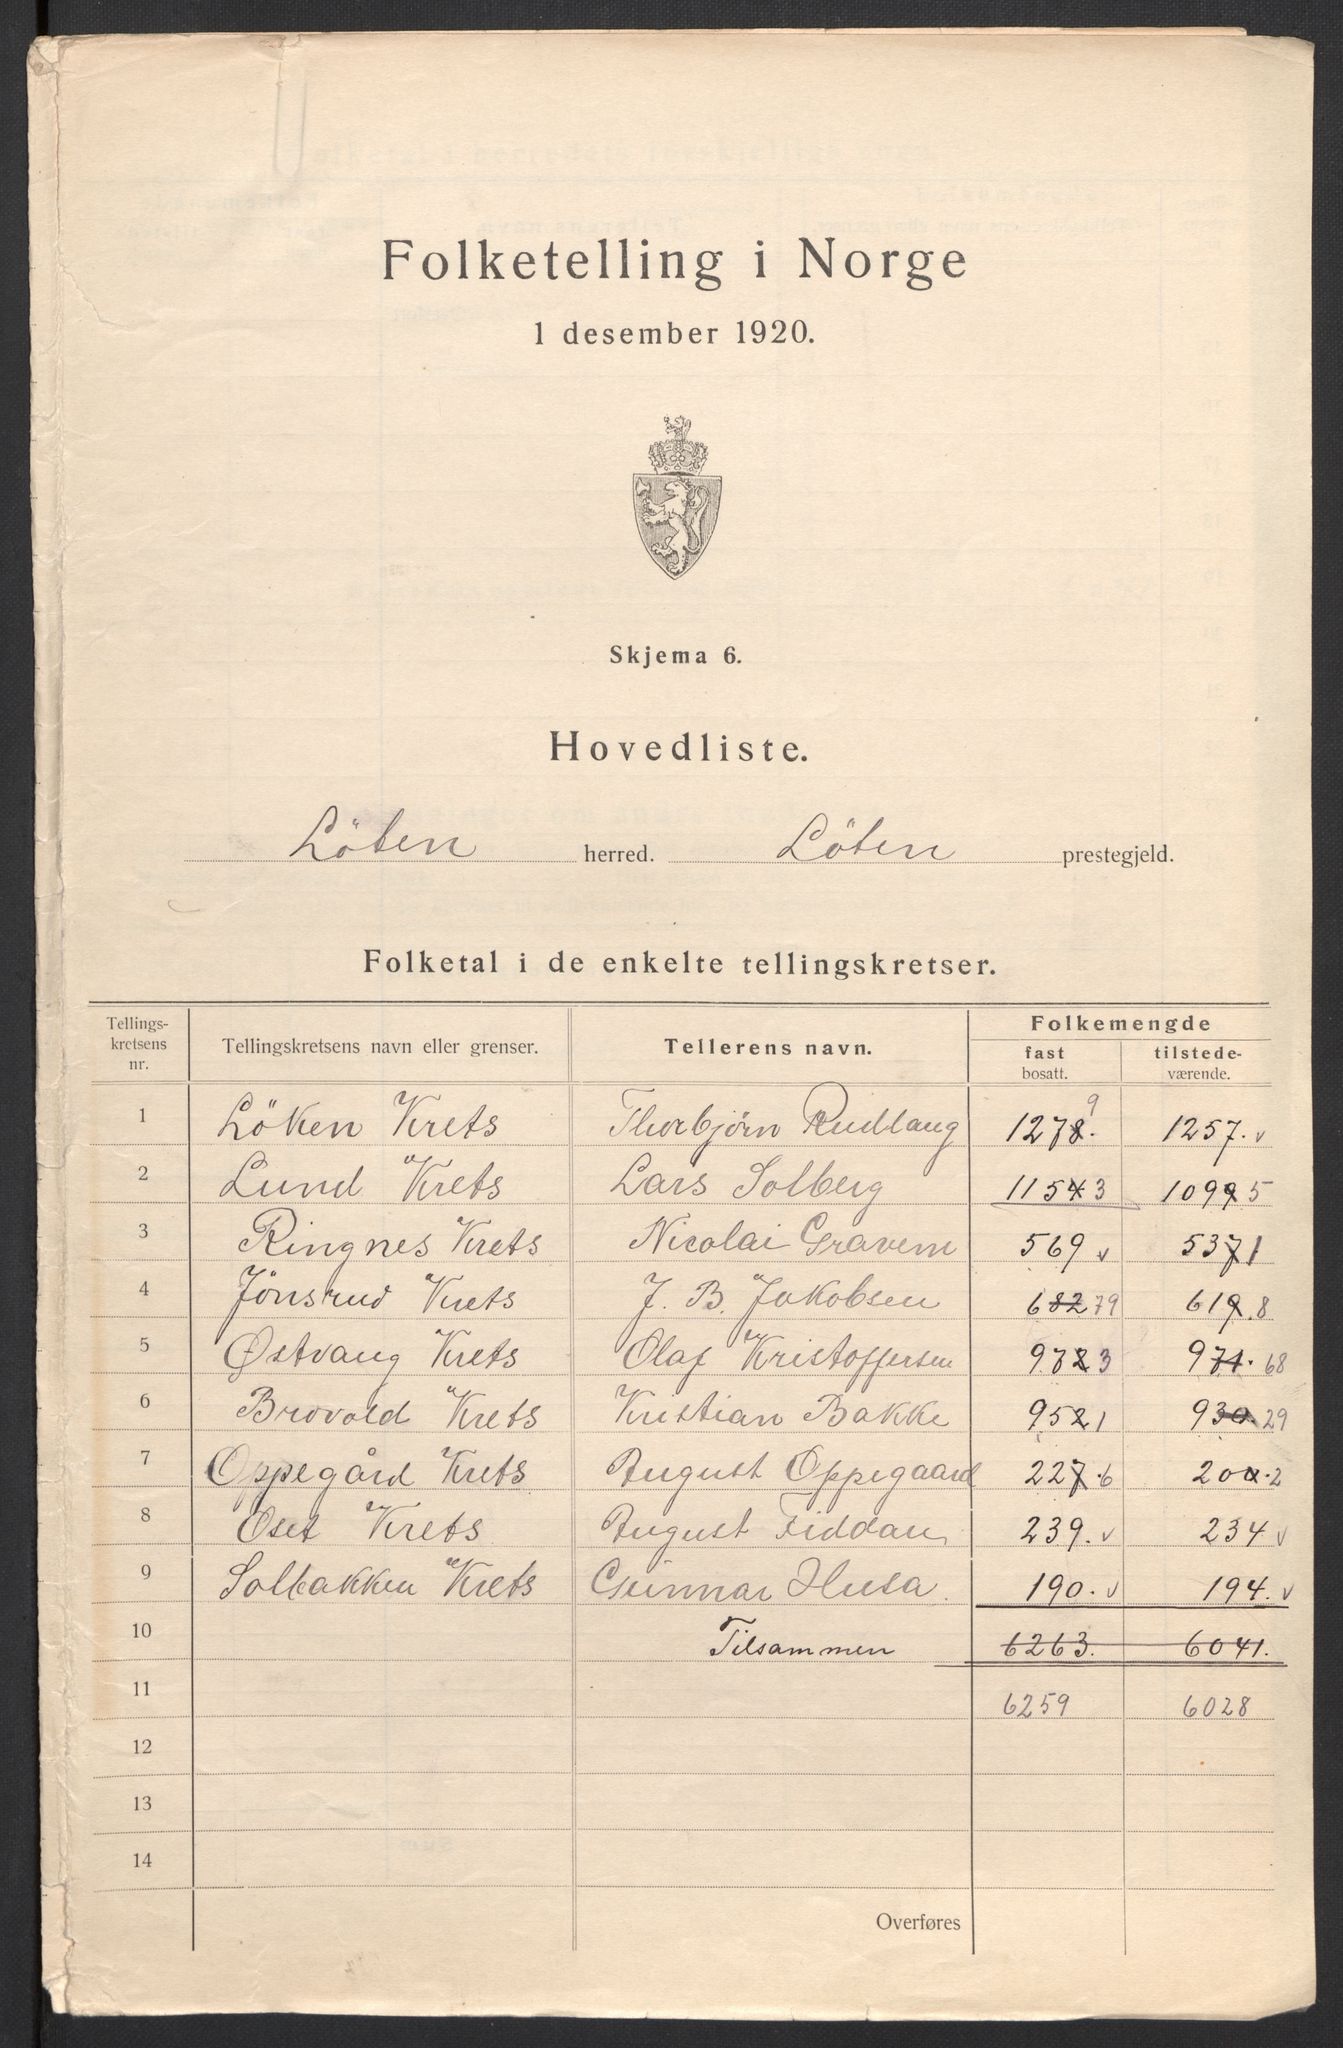 Folketelling i Norge
1 desember 1920.
Skjema 6.
Hovedliste.
Löten herred. Löten prestegjeld.
Folketal i de enkelte tellingskretser.
Tellings-kretsens nr. Tellingskretsens navn eller grenser. Tellerens navn. Folkemengde fast bosatt. tilstede-værende.
1 Löken Krets Thorbjørn Rudlang 1278. 9 1257. v
2 Lund Krets Lars Solberg 1154 3 1099 5
3 Ringnes Krets Nicolai Gravem 569 v 537 1
4 Jönsrud Krets J. B. Jakobsen 682 79 619. 8
5 Østvang Krets Olaf Kristoffersen 972 3 971. 68
6 Brovold Krets Kristian Bakke 952 1 930. 29
7 Oppegård Krets August Oppegaard 227. 6 200. 2
8 Oset Krets August Fiddan 239. v 234 v
9 Solbakken Krets Gunnar Husa. 190. v 194. v
10 Tilsammen 6263. 6041.
11 6259 6028
12
13
14
Overføres